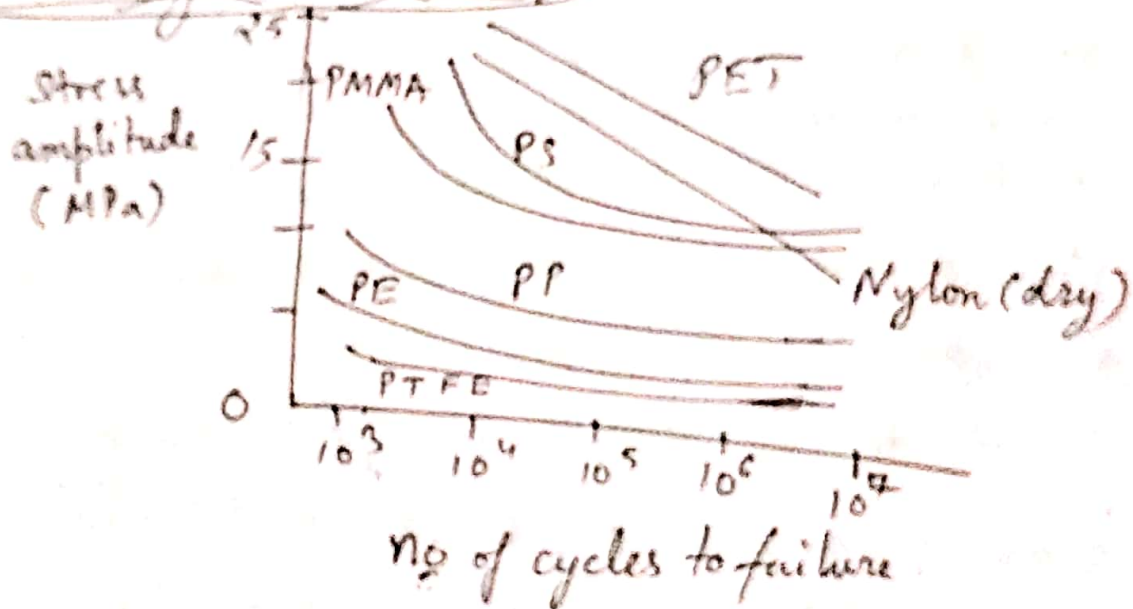 25
Stress
amplitude
(MPa)
PMMA
PET
15
PS
PP
PE
Nylon (dry)
PTFE
0
10³
10⁴
10⁵
10⁶
10⁷
no of cycles to failure